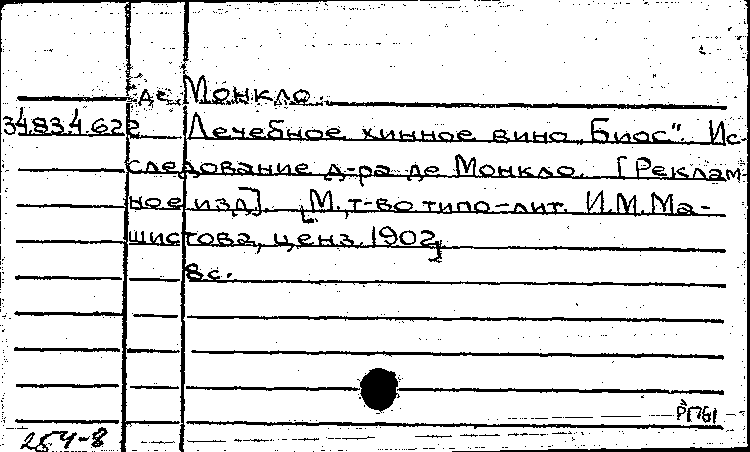 де Монкло.
34.834.622 Лечебное хинное вино „Биос“. Ис
следование д-ра де Монкло. [Реклам-
ное изд]. [М., т-во типо-лит. И.М. Ма-
шистова, ценз. 1902]
8с.
254-8